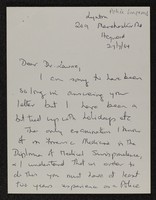 Dear Dr.
I am sorry to have been
so long in answering your
letter but I have been a
bit tied up with holidays etc.
The only examination I know
of in Forensic Medicine is the
Diploma of Medical Jurisprudence,
I understand that in order to
do this you must have at least
two years experience as a Police